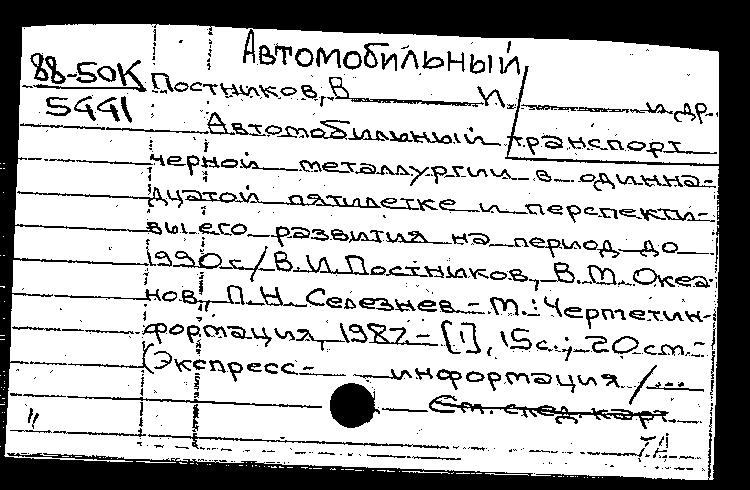 Автомобильный
88-50К
5441
Постников, В И. и др.
Автомобильный транспорт
черной металлургии в одинна-
дцатой пятилетке и перспекти-
вы его развития на период до
1990 г. / В.И. Постников, В.М. Океа-
нов, П.Н. Селезнев - М.: Черметин-
формация, 1987 - [1], 15 с.; 20 см. -
(Экспресс- информация / ...
См. след. карт
ТА